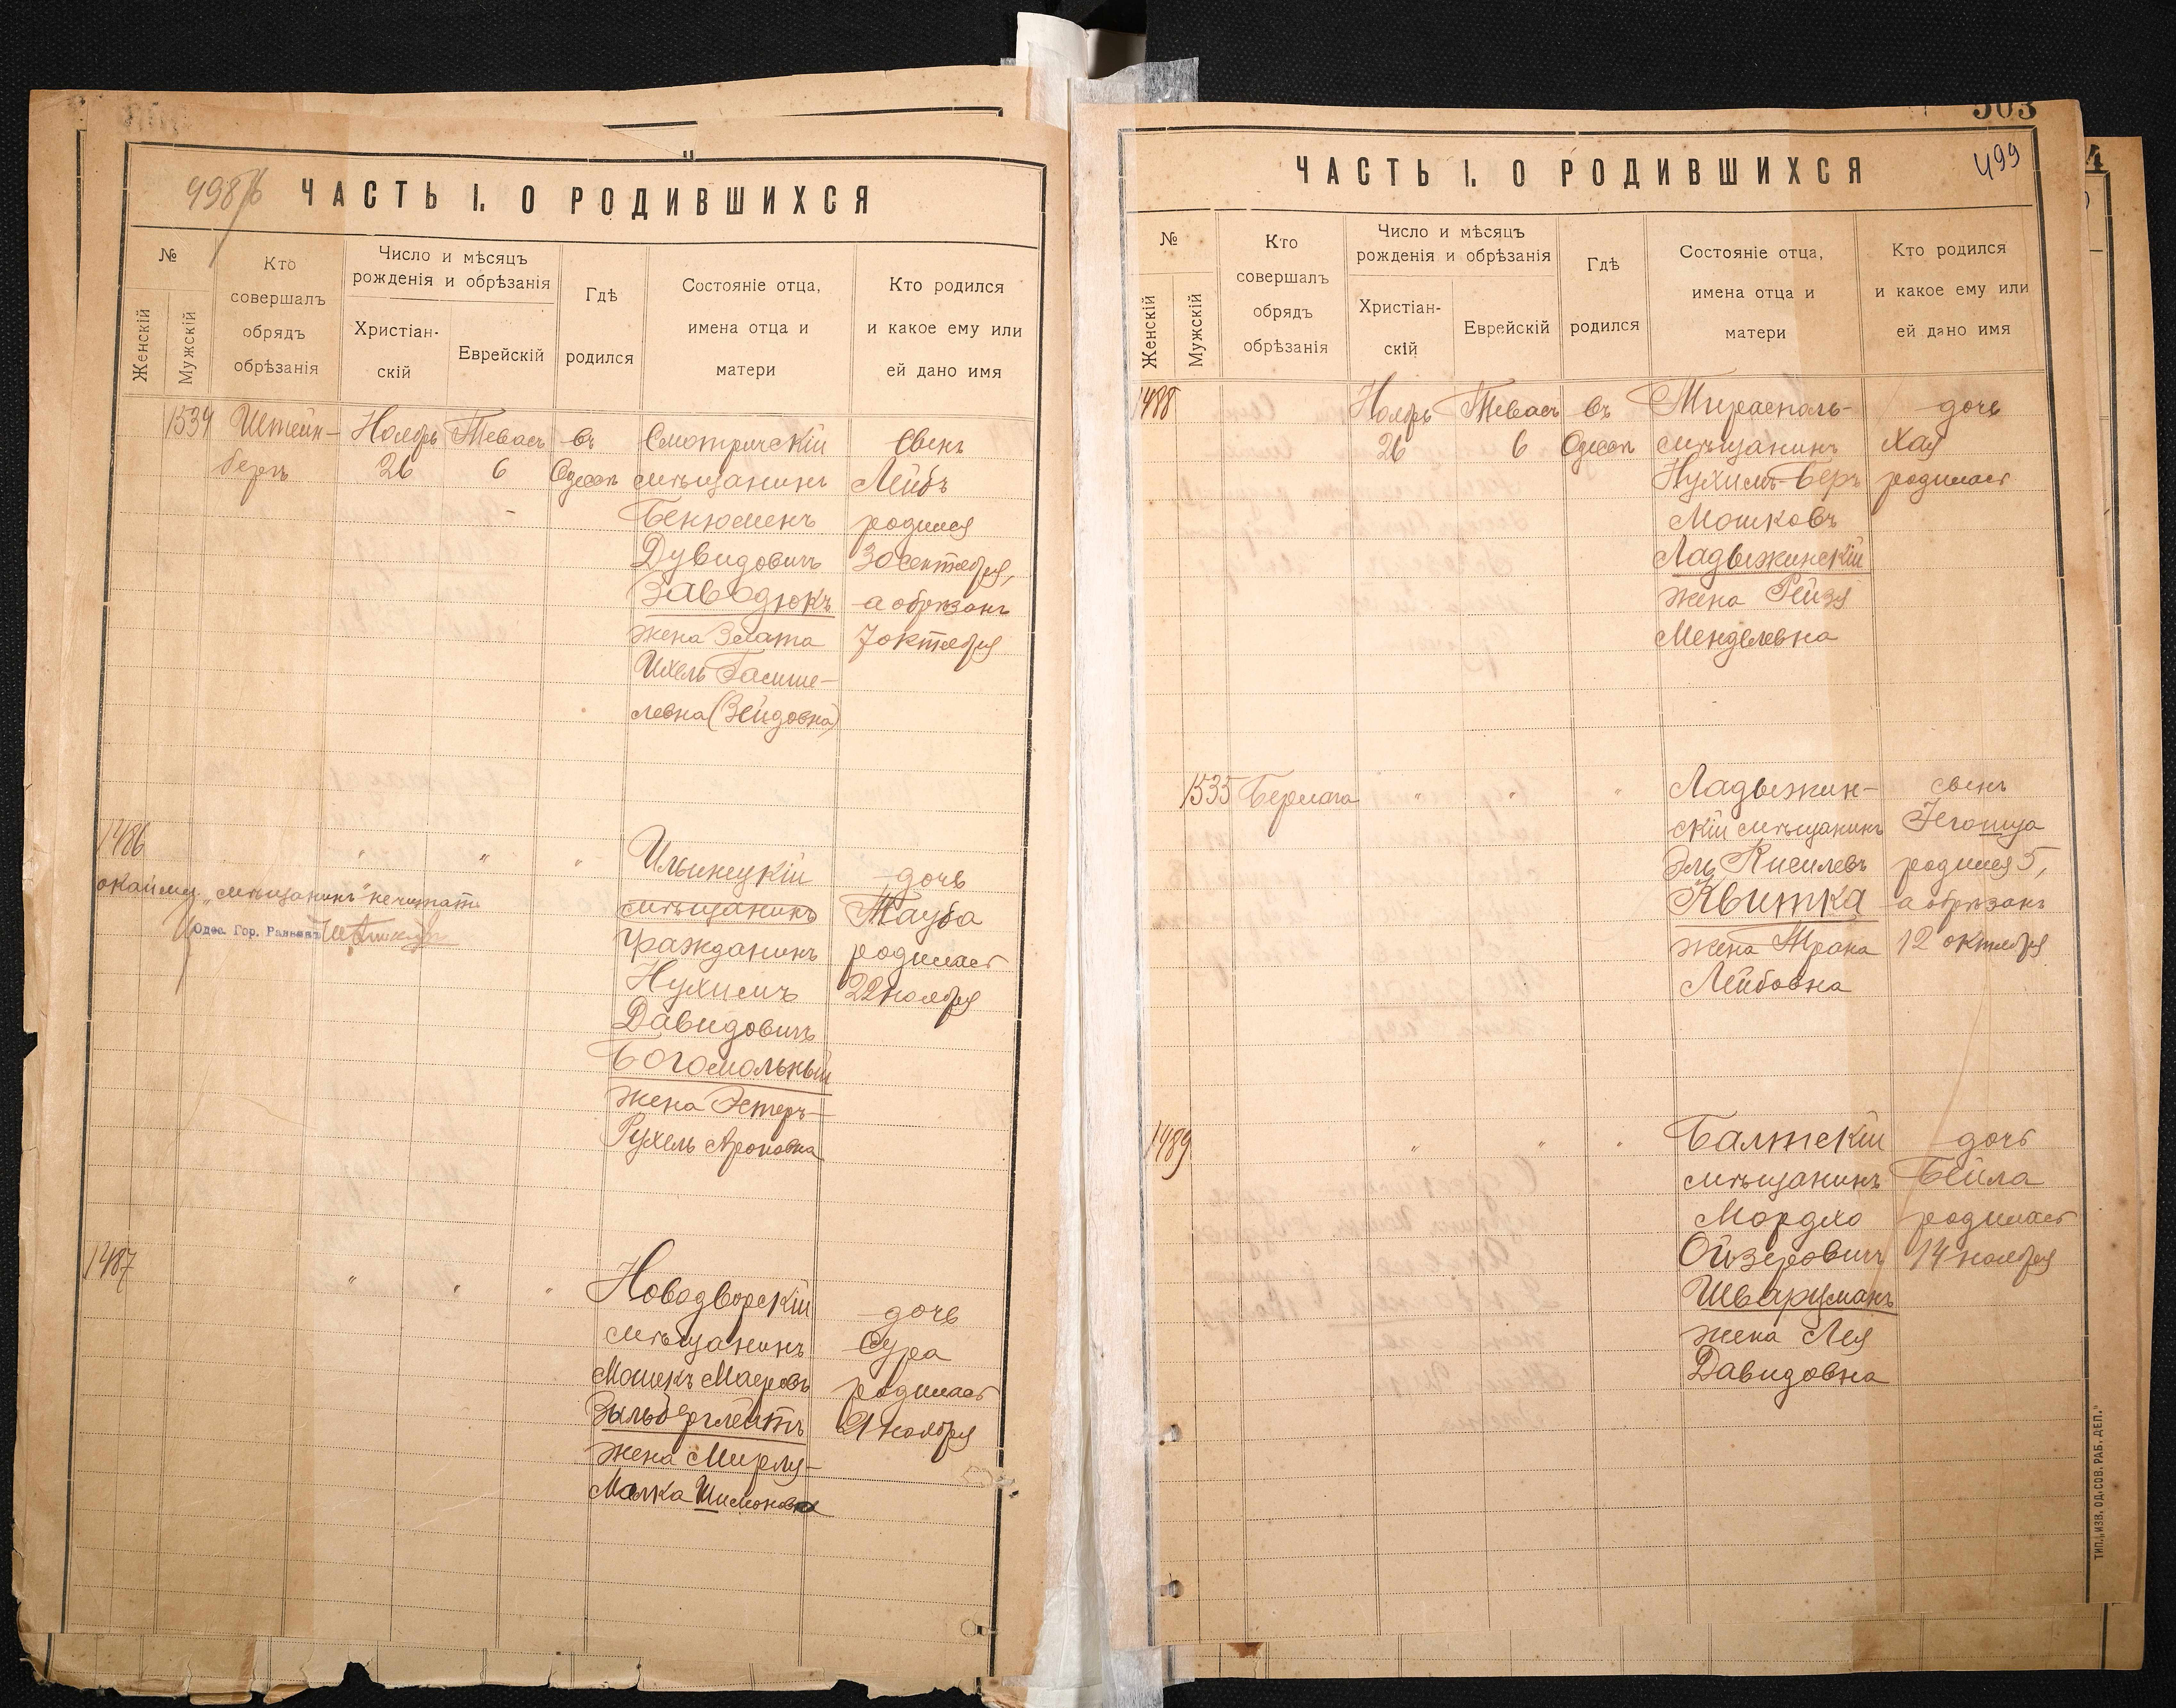 498/б
ЧАСТЬ I. О РОДИВШИХСЯ
№
Женскій
Мужскій
Кто
совершалъ
обрядъ
обрѣзанія
Число и мѣсяцъ
рожденія и обрѣзанія
Христіан-
скій
Еврейскій
Гдѣ
родился
Состояніе отца,
имена отца и
матери
Кто родился
и какое ему или
ей дано имя
1534 Штейн- Ноябрь Тевасъ въ Смотричскій Сынъ
бергъ 26 6 Одессѣ мѣщанинъ Лейбъ
Бенюменъ родился
Дувидовичъ 30 сентября,
Заводюкъ а обрѣзанъ
жена Злата 7 октября
Ихель Гасише-
левна (Зейдовна)
1486 " " " Ильинецкій дочь
мѣщанинъ Тауба
"мѣщанинъ" не читать
Одес. Гор. Раввинъ
гражданинъ родилась
Нухимъ 22 ноября
Давидовичъ
Богомольный
жена Эстеръ-
Рухель Ароновна
1487 " " " Новодворскій дочь
мѣщанинъ Сура
Мошекъ Маеровъ родилась
Зыльберглейтъ 21 ноября
жена Мирля-
Малка Шимоновна
503
499
ЧАСТЬ I. О РОДИВШИХСЯ
№
Женскій
Мужскій
Кто
совершалъ
обрядъ
обрѣзанія
Число и мѣсяцъ
рожденія и обрѣзанія
Христіан-
скій
Еврейскій
Гдѣ
родился
Состояніе отца,
имена отца и
матери
Кто родился
и какое ему или
ей дано имя
1488 Ноябрь Тевасъ въ Тирасполь- дочь
26 6 Одессѣ мѣщанинъ Хая
Нухимъ-Беръ родилась
Мошковъ
Ладыжинскій
жена Рейзя
Менделевна
1535 Бермана " " " Ладыжин- сынъ
скій мѣщанинъ Іегошуа
Эль Киселевъ родился 5,
Квитка а обрѣзанъ
жена Трана 12 октября
Лейбовна
1489 " " " Балтскій дочь
мѣщанинъ Бейла
Мордхо родилась
Ойзеровичъ 14 ноября
Шварцманъ
жена Лея
Давидовна
ТИП. „ИЗВ. ОД. СОВ. РАБ. ДЕП."